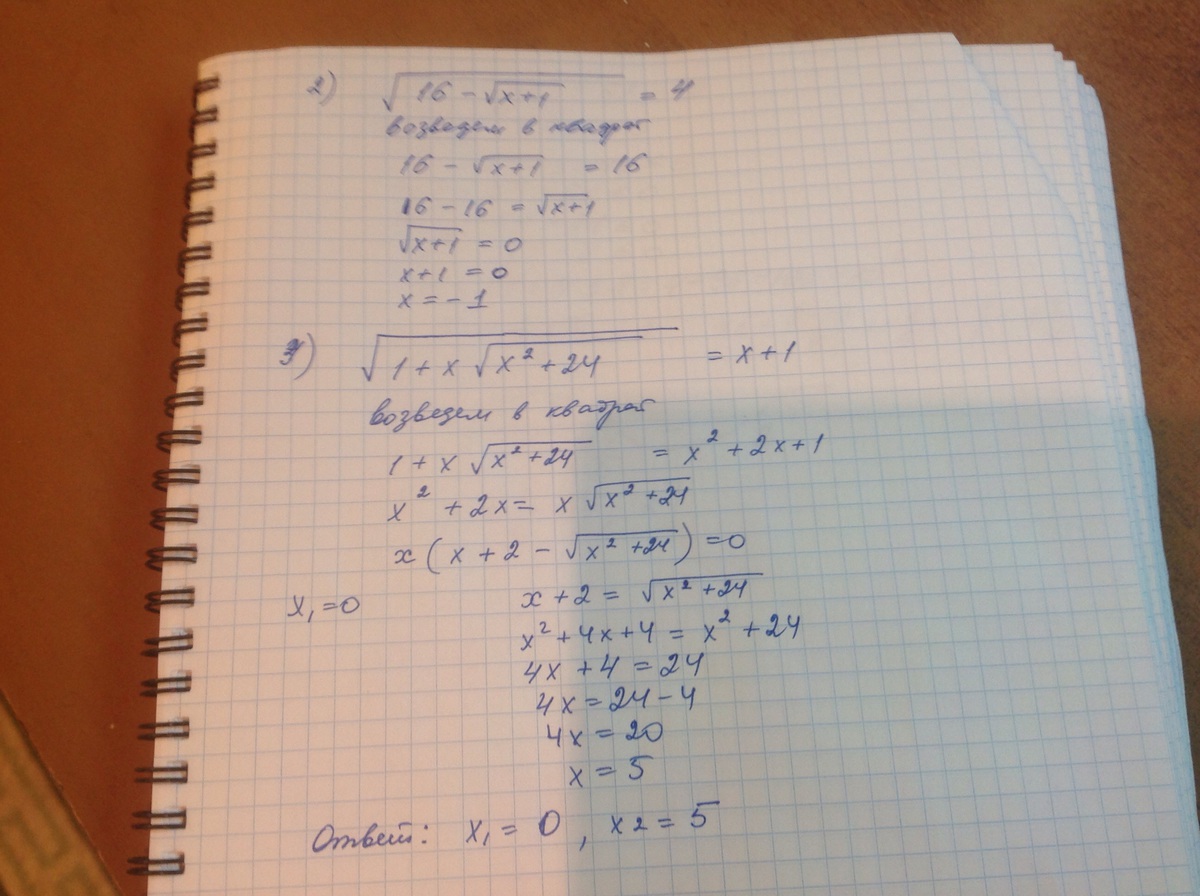 2) √(16 - √(x+1)) = 4
возведем в квадрат
16 - √(x+1) = 16
16 - 16 = √(x+1)
√(x+1) = 0
x+1 = 0
x = -1
3) √(1 + x √(x² + 24)) = x + 1
возведем в квадрат
1 + x √(x² + 24) = x² + 2x + 1
x² + 2x = x √(x² + 24)
x (x + 2 - √(x² + 24)) = 0
x₁ = 0 x + 2 = √(x² + 24)
x² + 4x + 4 = x² + 24
4x + 4 = 24
4x = 24 - 4
4x = 20
x = 5
Ответ: x₁ = 0, x2 = 5